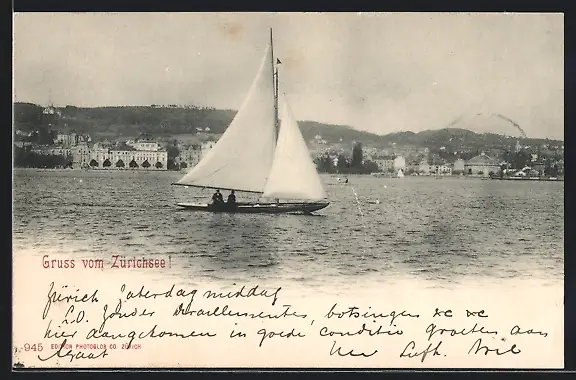 Gruss vom Zürichsee!
Zürich Zaterdag middag
Zonder deraillementen, botsingen &c &c
hier aangekomen in goede conditie groeten aan
945 EDITION PHOTOGLOB CO. ZÜRICH